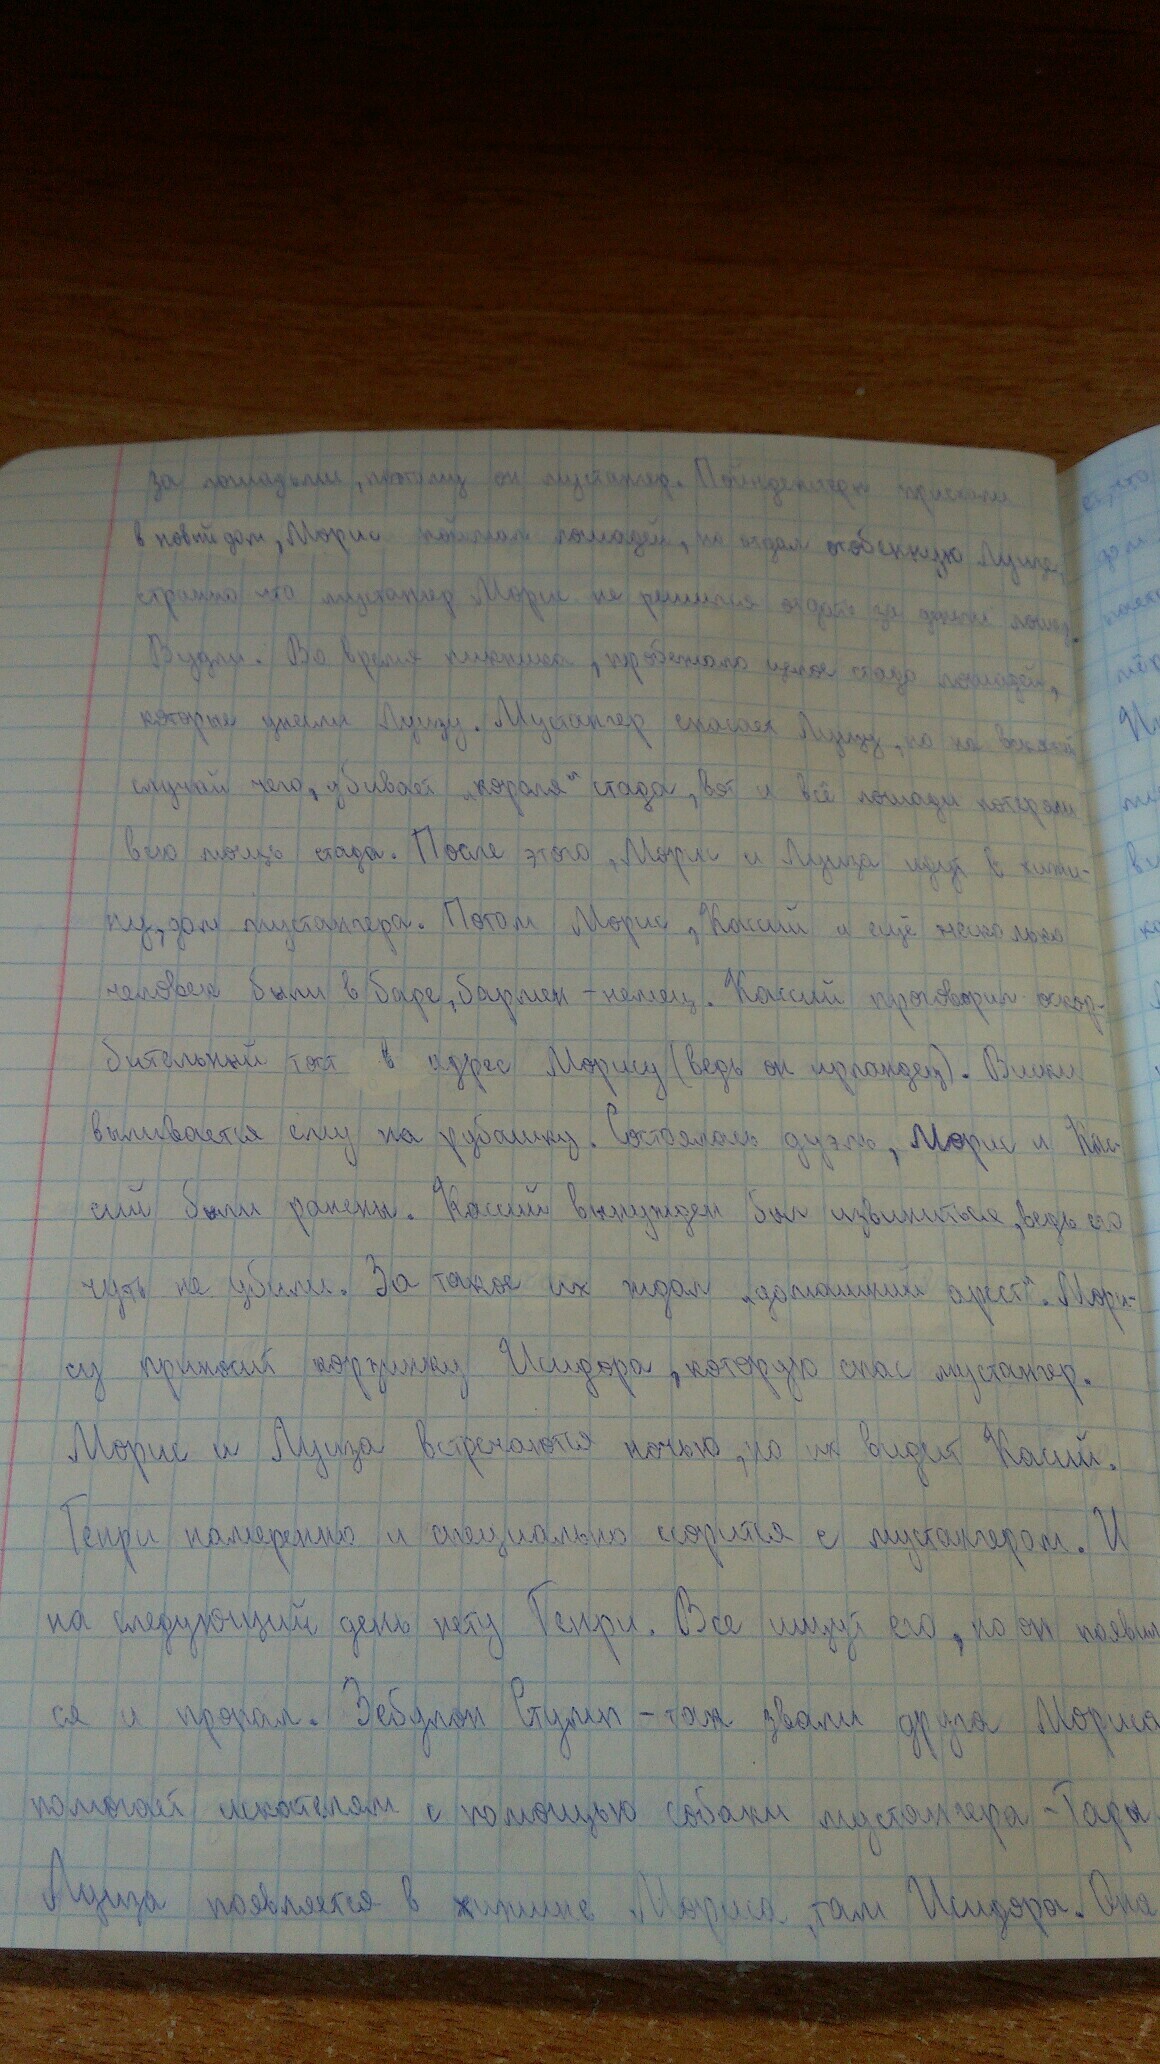 за лошадьми, поэтому он мустангер. Пойндекстеры приехали
в новый дом, Морис поймал лошадей, но отдал особенную Луизе,
странно что мустангер Морис не решился отдать за деньги
Вудли. Во время пикника, пробежало целое стадо лошадей,
которые унесли Луизу. Мустангер спасает Луизу, но на всякий
случай чего, убивает „короля" стада, вот и все лошади потеряли
всю мощь стада. После этого, Морис и Луиза идут в хижи-
ну, дом мустангера. Потом Морис, Кассий и ещё несколько
человек были в баре, бармен - немец. Кассий проговорил оскор-
бительный тост в адрес Морису (ведь он ирландец). Виски
выливается ему на рубашку. Состоялась дуэль, Морис и Кас-
сий были ранены. Кассий вынужден был извиниться, ведь его
чуть не убили. За такое их ждал „домашний арест". Мори-
су приносит корзинку Исидора, которую спас мустангер.
Морис и Луиза встречаются ночью, но их видит Касий.
Генри намеренно и специально сорится с мустангером. И
на следующий день нету Генри. Все ищут его, но он появил
ся и пропал. Зебулон Стумп - так звали друга Мориса
помогает искателям с помощью собаки мустангера - Тары
Луиза появляется в хижине Мориса, там Исидора. Она